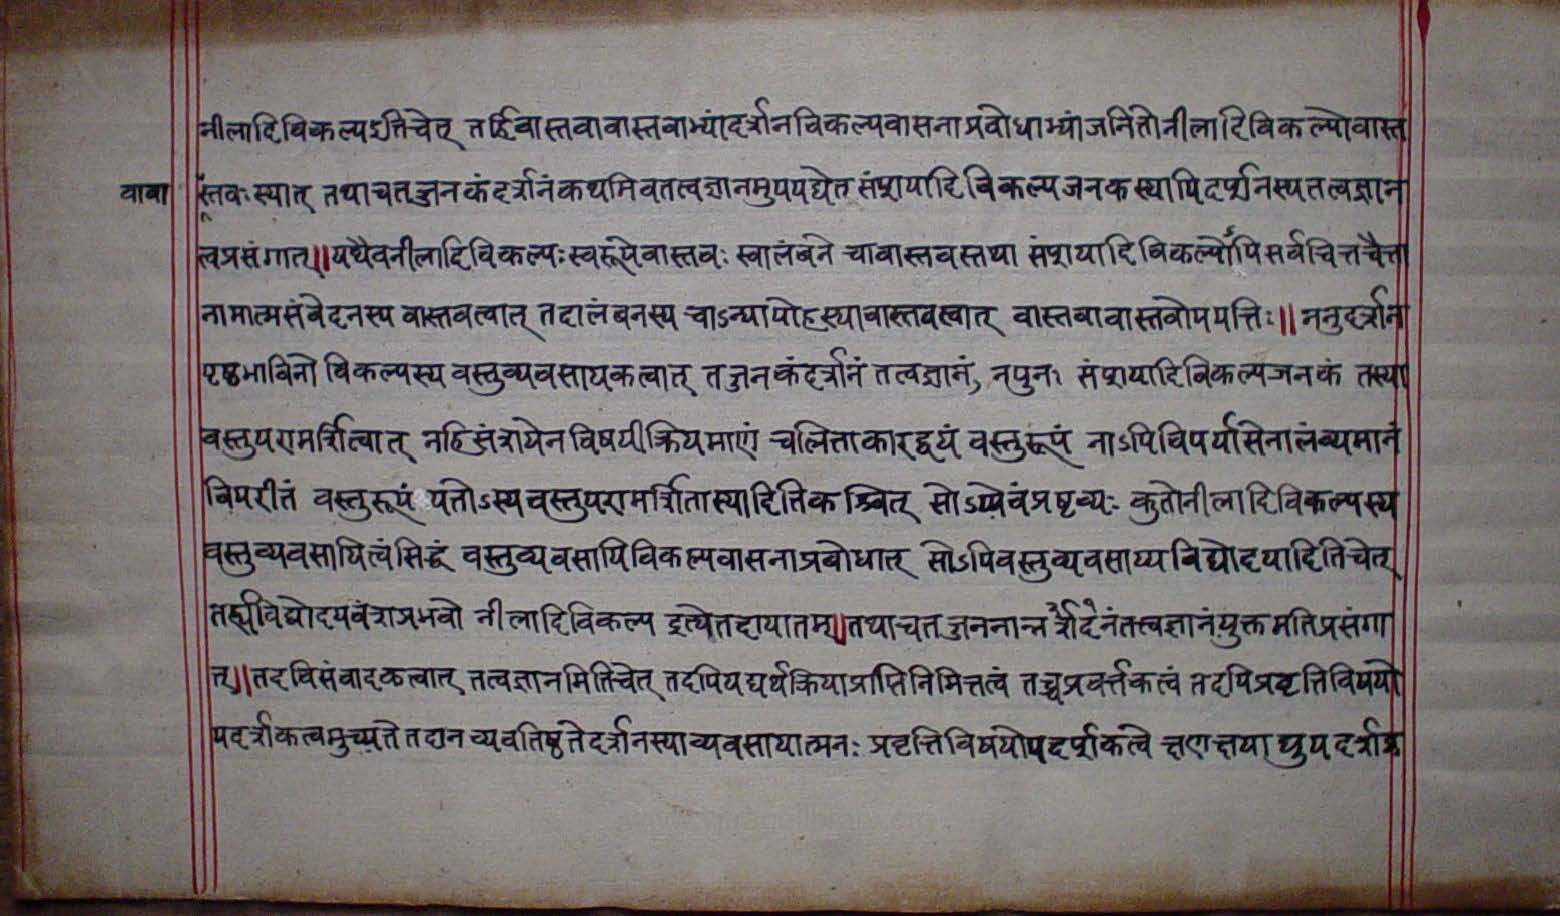 नीलादिविकल्पइतिचेत् तर्हिवास्तवावास्तवाभ्यांदर्शनविकल्पवासनाप्रबोधाभ्यांजनितोनीलादिविकल्पोवास्त
वावा स्तवः स्यात् तथाचतज्जनकंदर्शनंकथमिवतत्वज्ञानमुपपद्येत संशयादिविकल्पजनकस्यापिदर्शनस्यतत्वज्ञान
त्वप्रसंगात्॥यथैवनीलादिविकल्पः स्वरूपेवास्तवः स्वालंबने चावास्तवस्तथा संशयादिविकल्पोपि सर्वचित्तचैत्ता
नामात्मसंवेदनस्य वास्तवत्वात् तदालंबनस्य चाऽन्यापोहस्यावास्तवत्वात् वास्तवावास्तवोपपत्तिः॥ ननुदर्शन
पृष्ठभाविनो विकल्पस्य वस्तुव्यवसायकत्वात् तज्जनकंदर्शनं तत्वज्ञानं, नपुनः संशयादिविकल्पजनकं तस्या
वस्तुपरामर्शित्वात् नहिसंशयेनविषयीक्रियमाणं चलिताकारद्वयं वस्तुरूपं नाऽपिविपर्यासेनालंब्यमानं
विपरीतं वस्तुरूपं यतोऽस्यवस्तुपरामर्शितास्यादितिकश्चित् सोऽप्येवंप्रष्टव्यः कुतोनीलादिविकल्पस्य
वस्तुव्यवसायित्वंसिद्धं वस्तुव्यवसायिविकल्पवासनाप्रबोधात् सोऽपिवस्तुव्यवसाय्यविद्योदयादितिचेत्
तर्ह्यविद्योदयवंशप्रभवो नीलादिविकल्प इत्येतदायातम्॥तथाचतज्जननान्नदर्शनंतत्वज्ञानंयुक्तमतिप्रसंगा
त्॥तदविसंवादकत्वात् तत्वज्ञानमितिचेत् तदपियद्यर्थक्रियाप्राप्तिनिमित्तत्वं तच्चप्रवर्त्तकत्वं तदपिप्रवृत्तिविषयो
पदर्शकत्वमुच्यते तदान व्यवतिष्ठतेदर्शनस्याव्यवसायात्मनः प्रवृत्तिविषयोपदर्शकत्वे क्षणक्षया